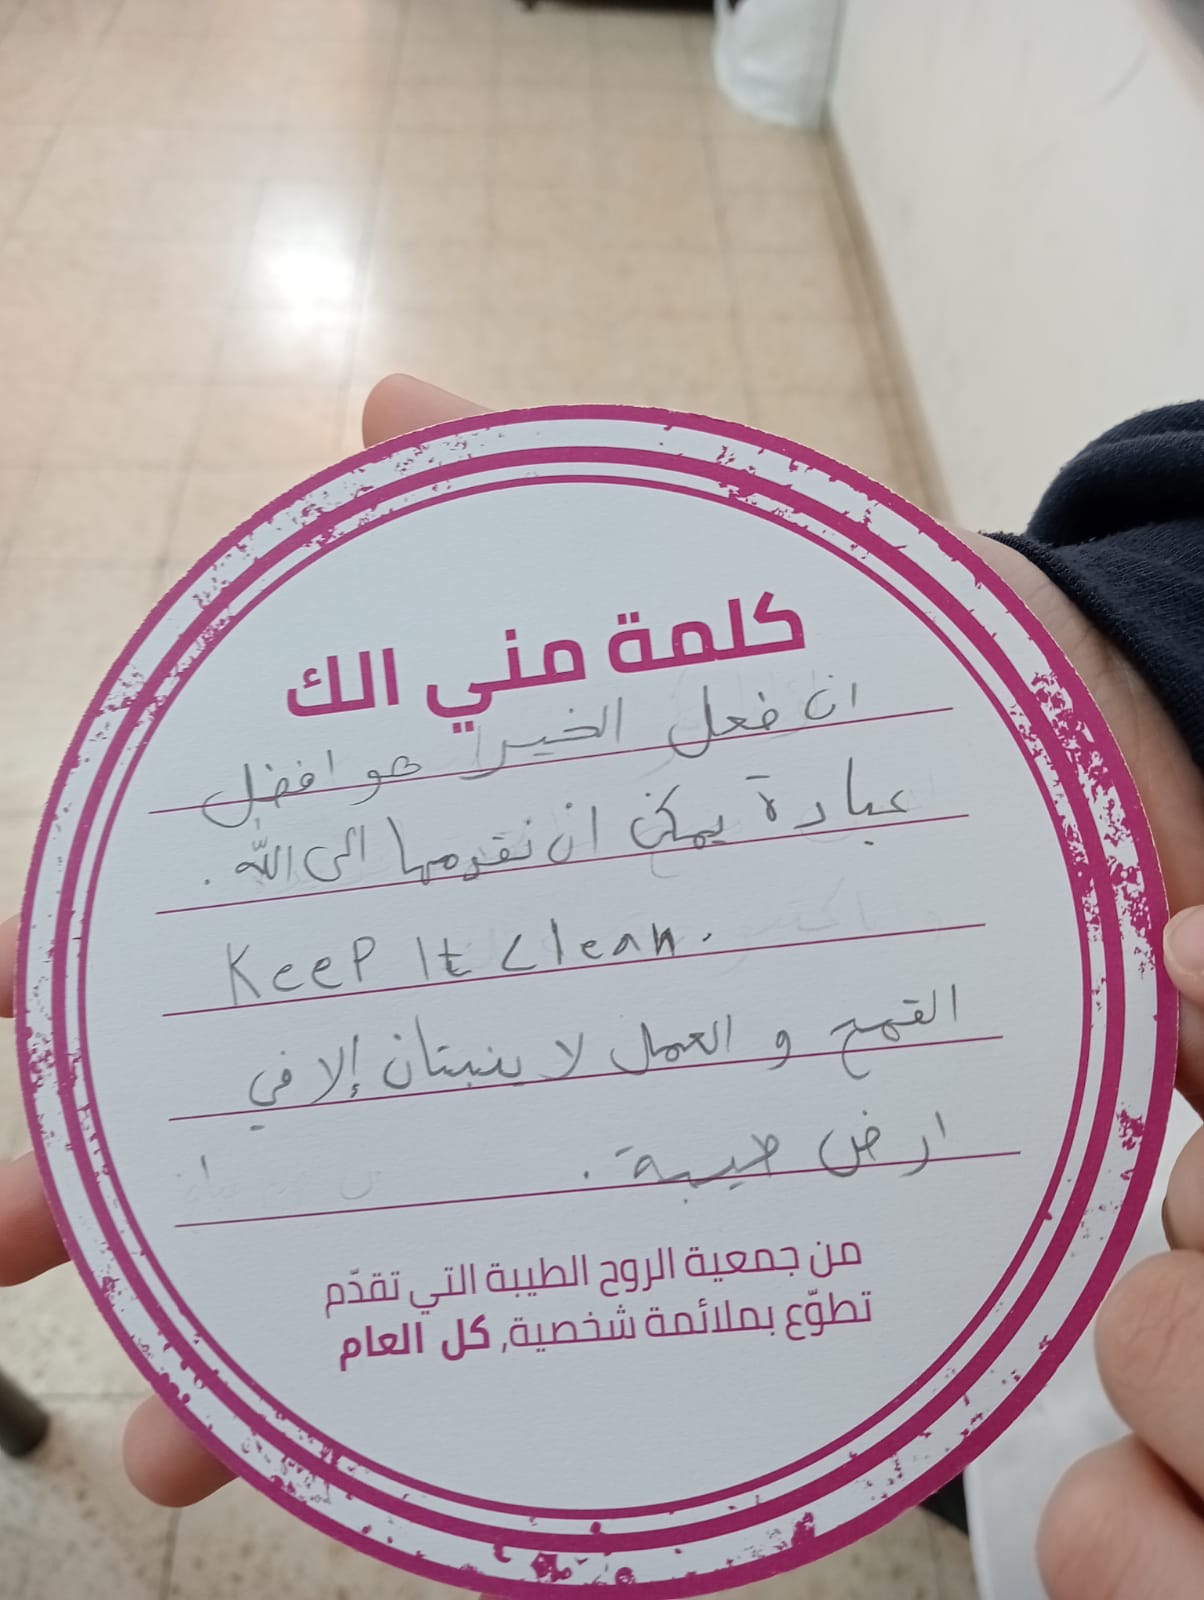 كلمة مني الك
ان فعل الخير هو افضل
عبادة يمكن ان نقدمها الى الله .
Keep It clean.
القمح و العمل لا ينبتان إلا في
ارض طيبة .
من جمعية الروح الطيبة التي تقدّم
تطوّع بملائمة شخصية, كل العام